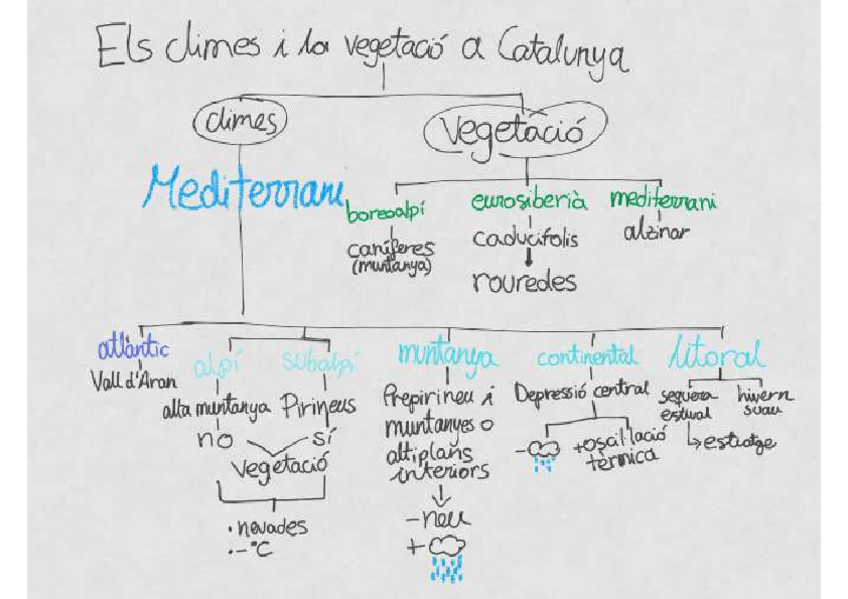 Els climes i la vegetació a Catalunya
climes
Vegetació
Mediterrani
boreoalpí
eurosiberià
mediterrani
caníferes
(muntanya)
caducifolis
rouredes
alzinar
atlàntic
Vall d'Aran
alpí
subalpí
alta muntanya
Pirineus
no
sí
vegetació
• nevades
• -°C
muntanya
Prepirineu i
muntanyes o
altiplans
interiors
-neu
+
continental
Depressió central
-
+oscil·lació
tèrmica
litoral
sequera
estival
estiatge
hivern
suau